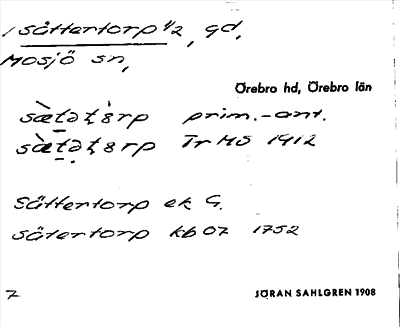 1 Såttertorp ½, gd,
Mosjö sn,
Örebro hd, Örebro län
sæ̀tətȯrp prim.-ant.
sæ̀tətȣrp TrMS 1912
Sättertorp ek G.
Såtertorp kb 07 1752
7
JÖRAN SAHLGREN 1908